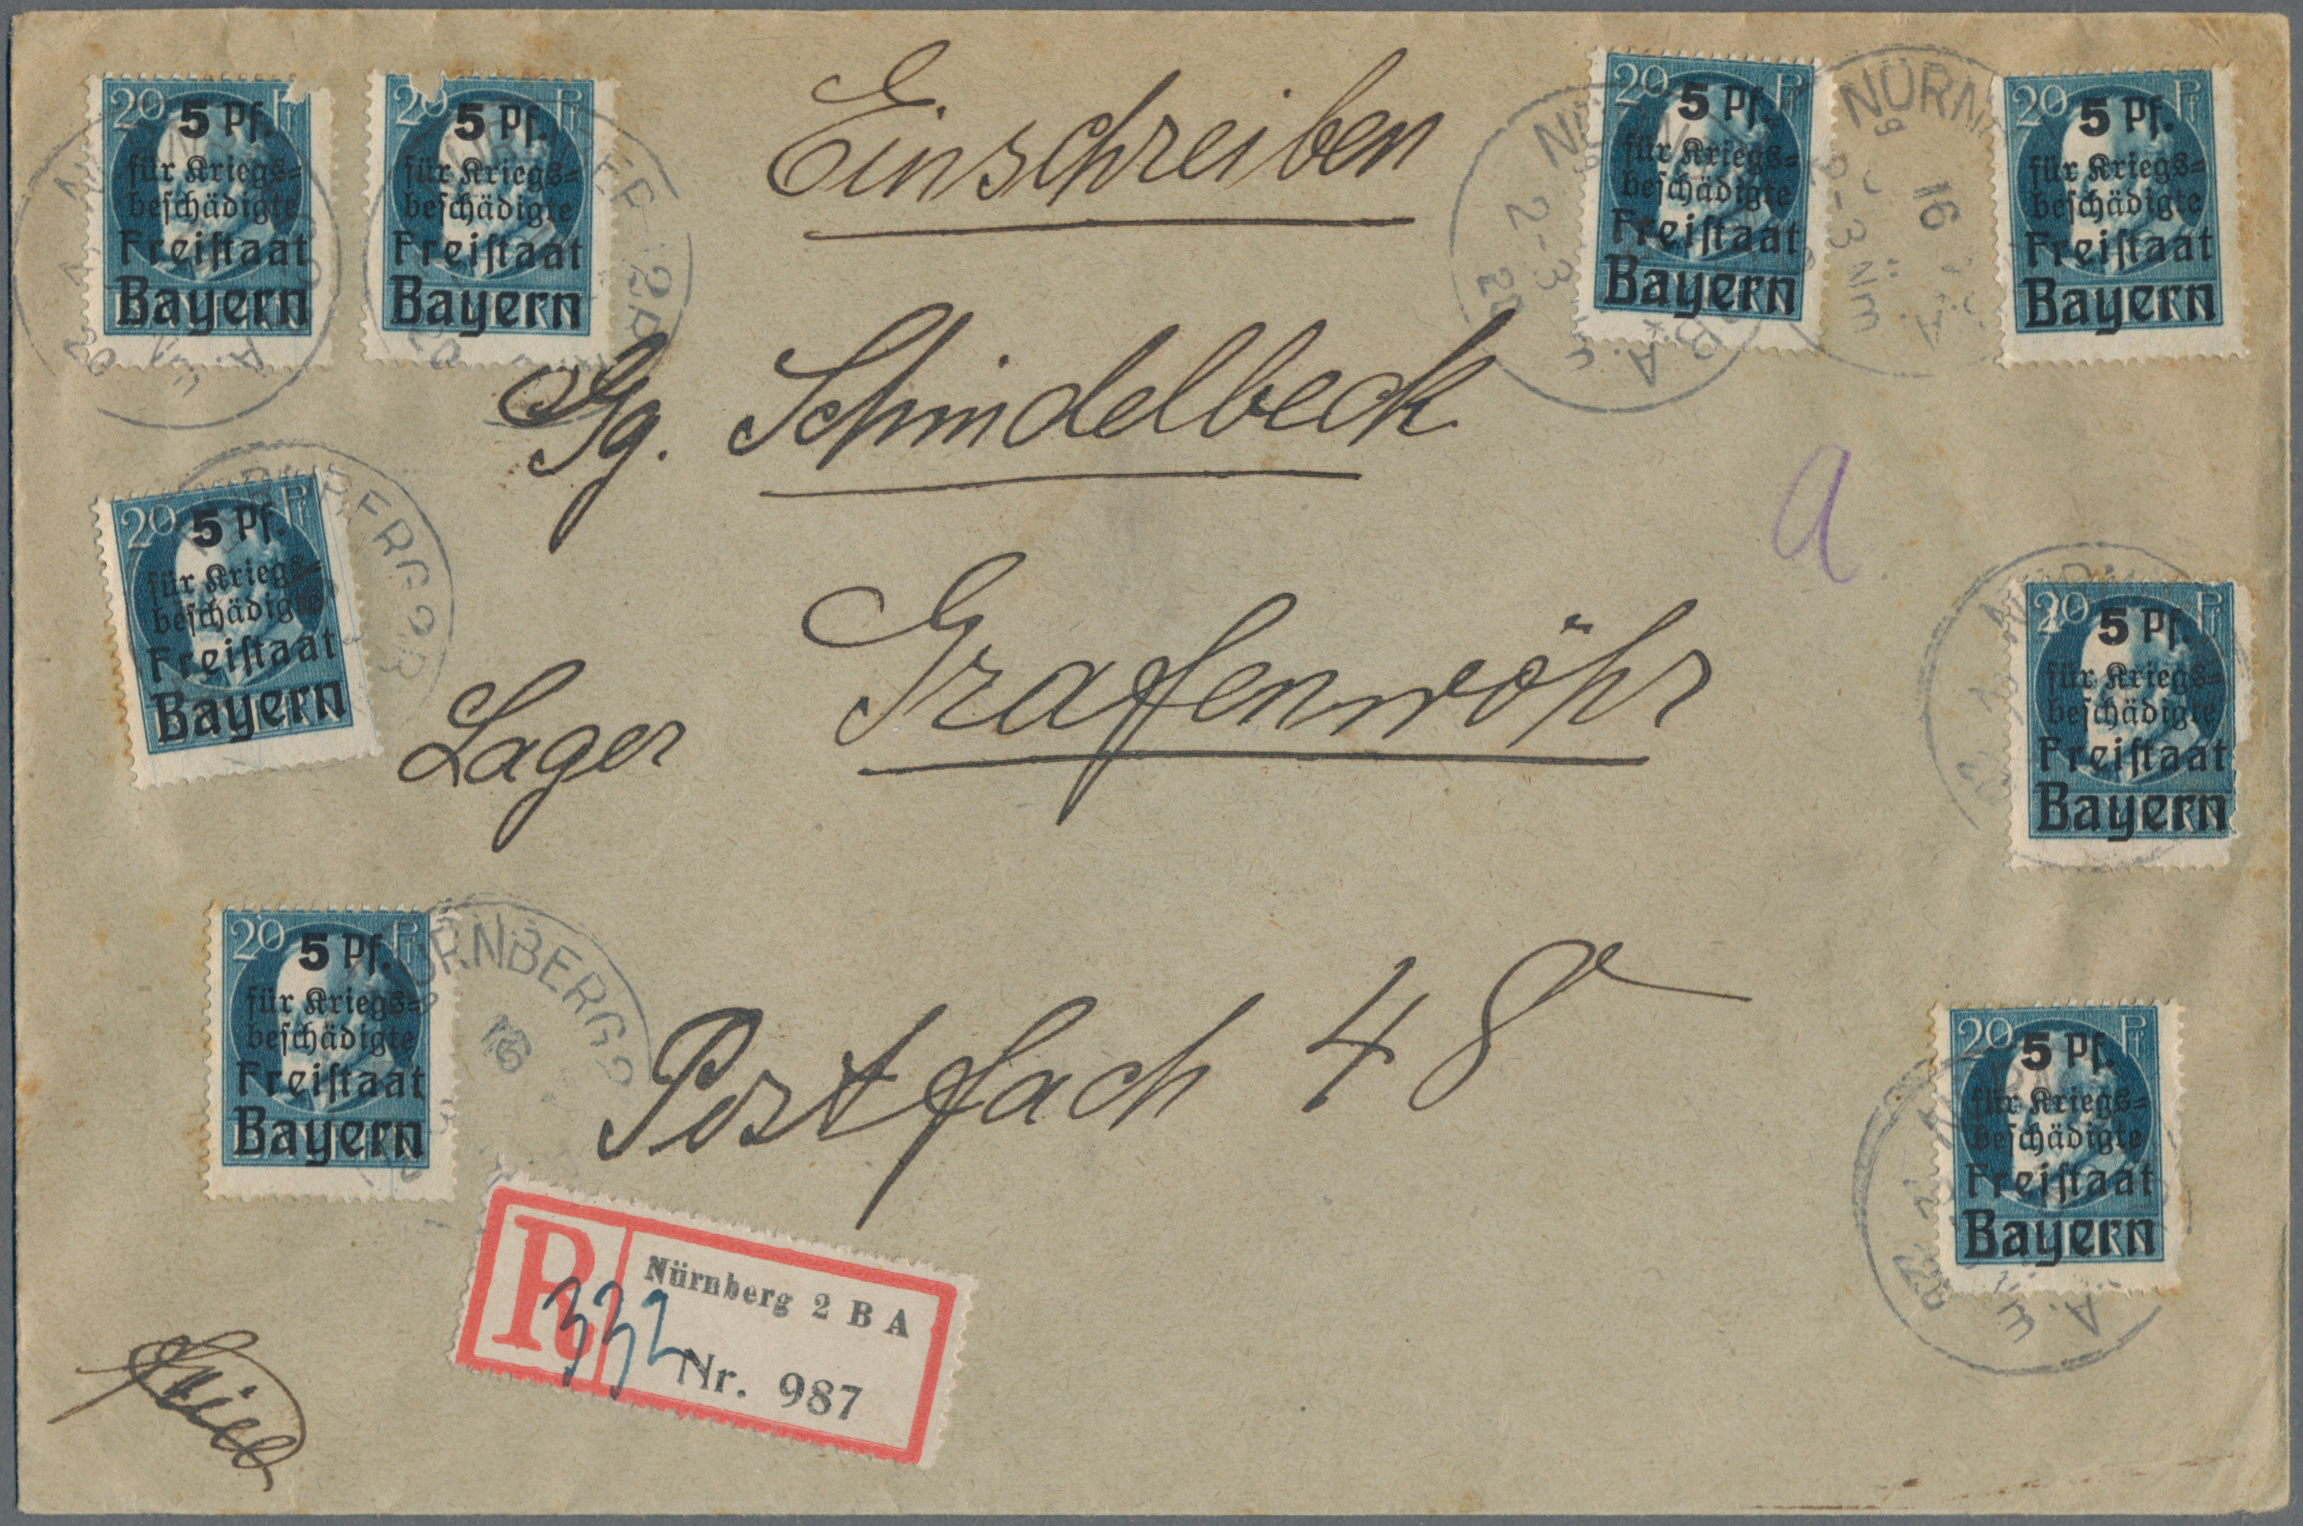 20 Pf
5 Pf.
für Kriegs=
beschädigte
Freistaat
Bayern
20 Pf
5 Pf.
für Kriegs=
beschädigte
Freistaat
Bayern
Einschreiben
20 Pf
5 Pf.
für Kriegs=
beschädigte
Freistaat
Bayern
NÜRN
16
2-3 Nm
20 Pf
5 Pf.
für Kriegs=
beschädigte
Freistaat
Bayern
Gg. Schindelbeck
a
20 Pf
5 Pf.
für Kriegs=
beschädigte
Freistaat
Bayern
Lager Grafenwöhr
20 Pf
5 Pf.
für Kriegs=
beschädigte
Freistaat
Bayern
20 Pf
5 Pf.
für Kriegs=
beschädigte
Freistaat
Bayern
NÜRNBERG 2
16
Postfach 48
20 Pf
5 Pf.
für Kriegs=
beschädigte
Freistaat
Bayern
R
Nürnberg 2 B A
332
Nr. 987